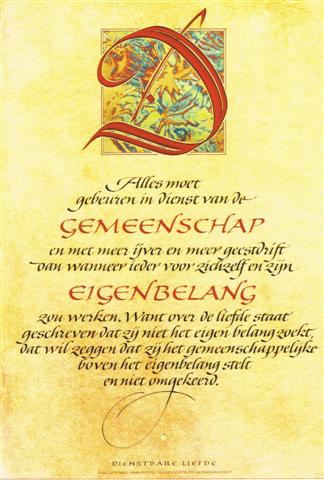 D
Alles moet
gebeuren in dienst van de
GEMEENSCHAP
en met meer ijver en meer geestdrift
dan wanneer ieder voor zichzelf en zijn
EIGENBELANG
zou werken. Want over de liefde staat
geschreven dat zij niet het eigen belang zoekt,
dat wil zeggen dat zij het gemeenschappelijke
boven het eigenbelang stelt
en niet omgekeerd.
DIENSTBARE LIEFDE